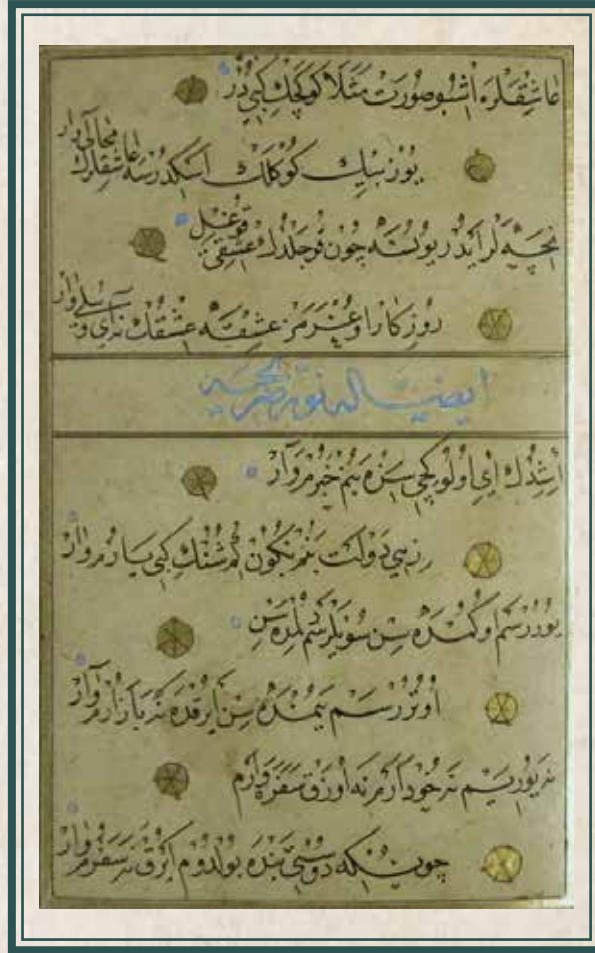 عَاشِقْلَرَه اُشْبُو صُورَتْ مَثَلَا كُوكْجَكْ كِبِي دُرْ
يُوزْ بِيكْ كُوكْلَكْ اَسْكِدُرْسَه عَاشِقْلَرُكْ مَجَالِي وَارْ
نِجَه لَرْ اَيْدُرْ يُونُسَه چُونْ قُوجَلْدُكْ عِشْقِي قُوغِلْ
رُوزِكَارْ اُوغْرَمَزْ عِشْقَه عِشْقُكْ نَه آيِي وُ يِيلِي وَارْ
ايضا له نور ضريحه
اِشِدُكْ اَيْ اُولُو كِچِي سِزَه بَنُمْ خَبَرُمْ وَارْ
زِهِي دَوْلَتْ بَنُمْ بُكُونْ كِمْ سُنُكْ كِبِي يَارُمْ وَارْ
يُورُرْسَمْ اُوكُمْدَه سِنْ سُويْلَرْسَمْ دِلُمْدَه سِنْ
اُوتُرُرْسَمْ يَنُمْدَه سِنْ اَيْرُقْدَه نَه بَازَارُمْ وَارْ
نَه يُورِيَيِمْ نَه خُودْ اَرَمْ نَه اُوزَقْ سَفَرَه وَارَمْ
چُونْكِه دُوسْتِي بُنْدَه بُولْدُومْ اَيْرُقْ نَه سَفَرُمْ وَارْ